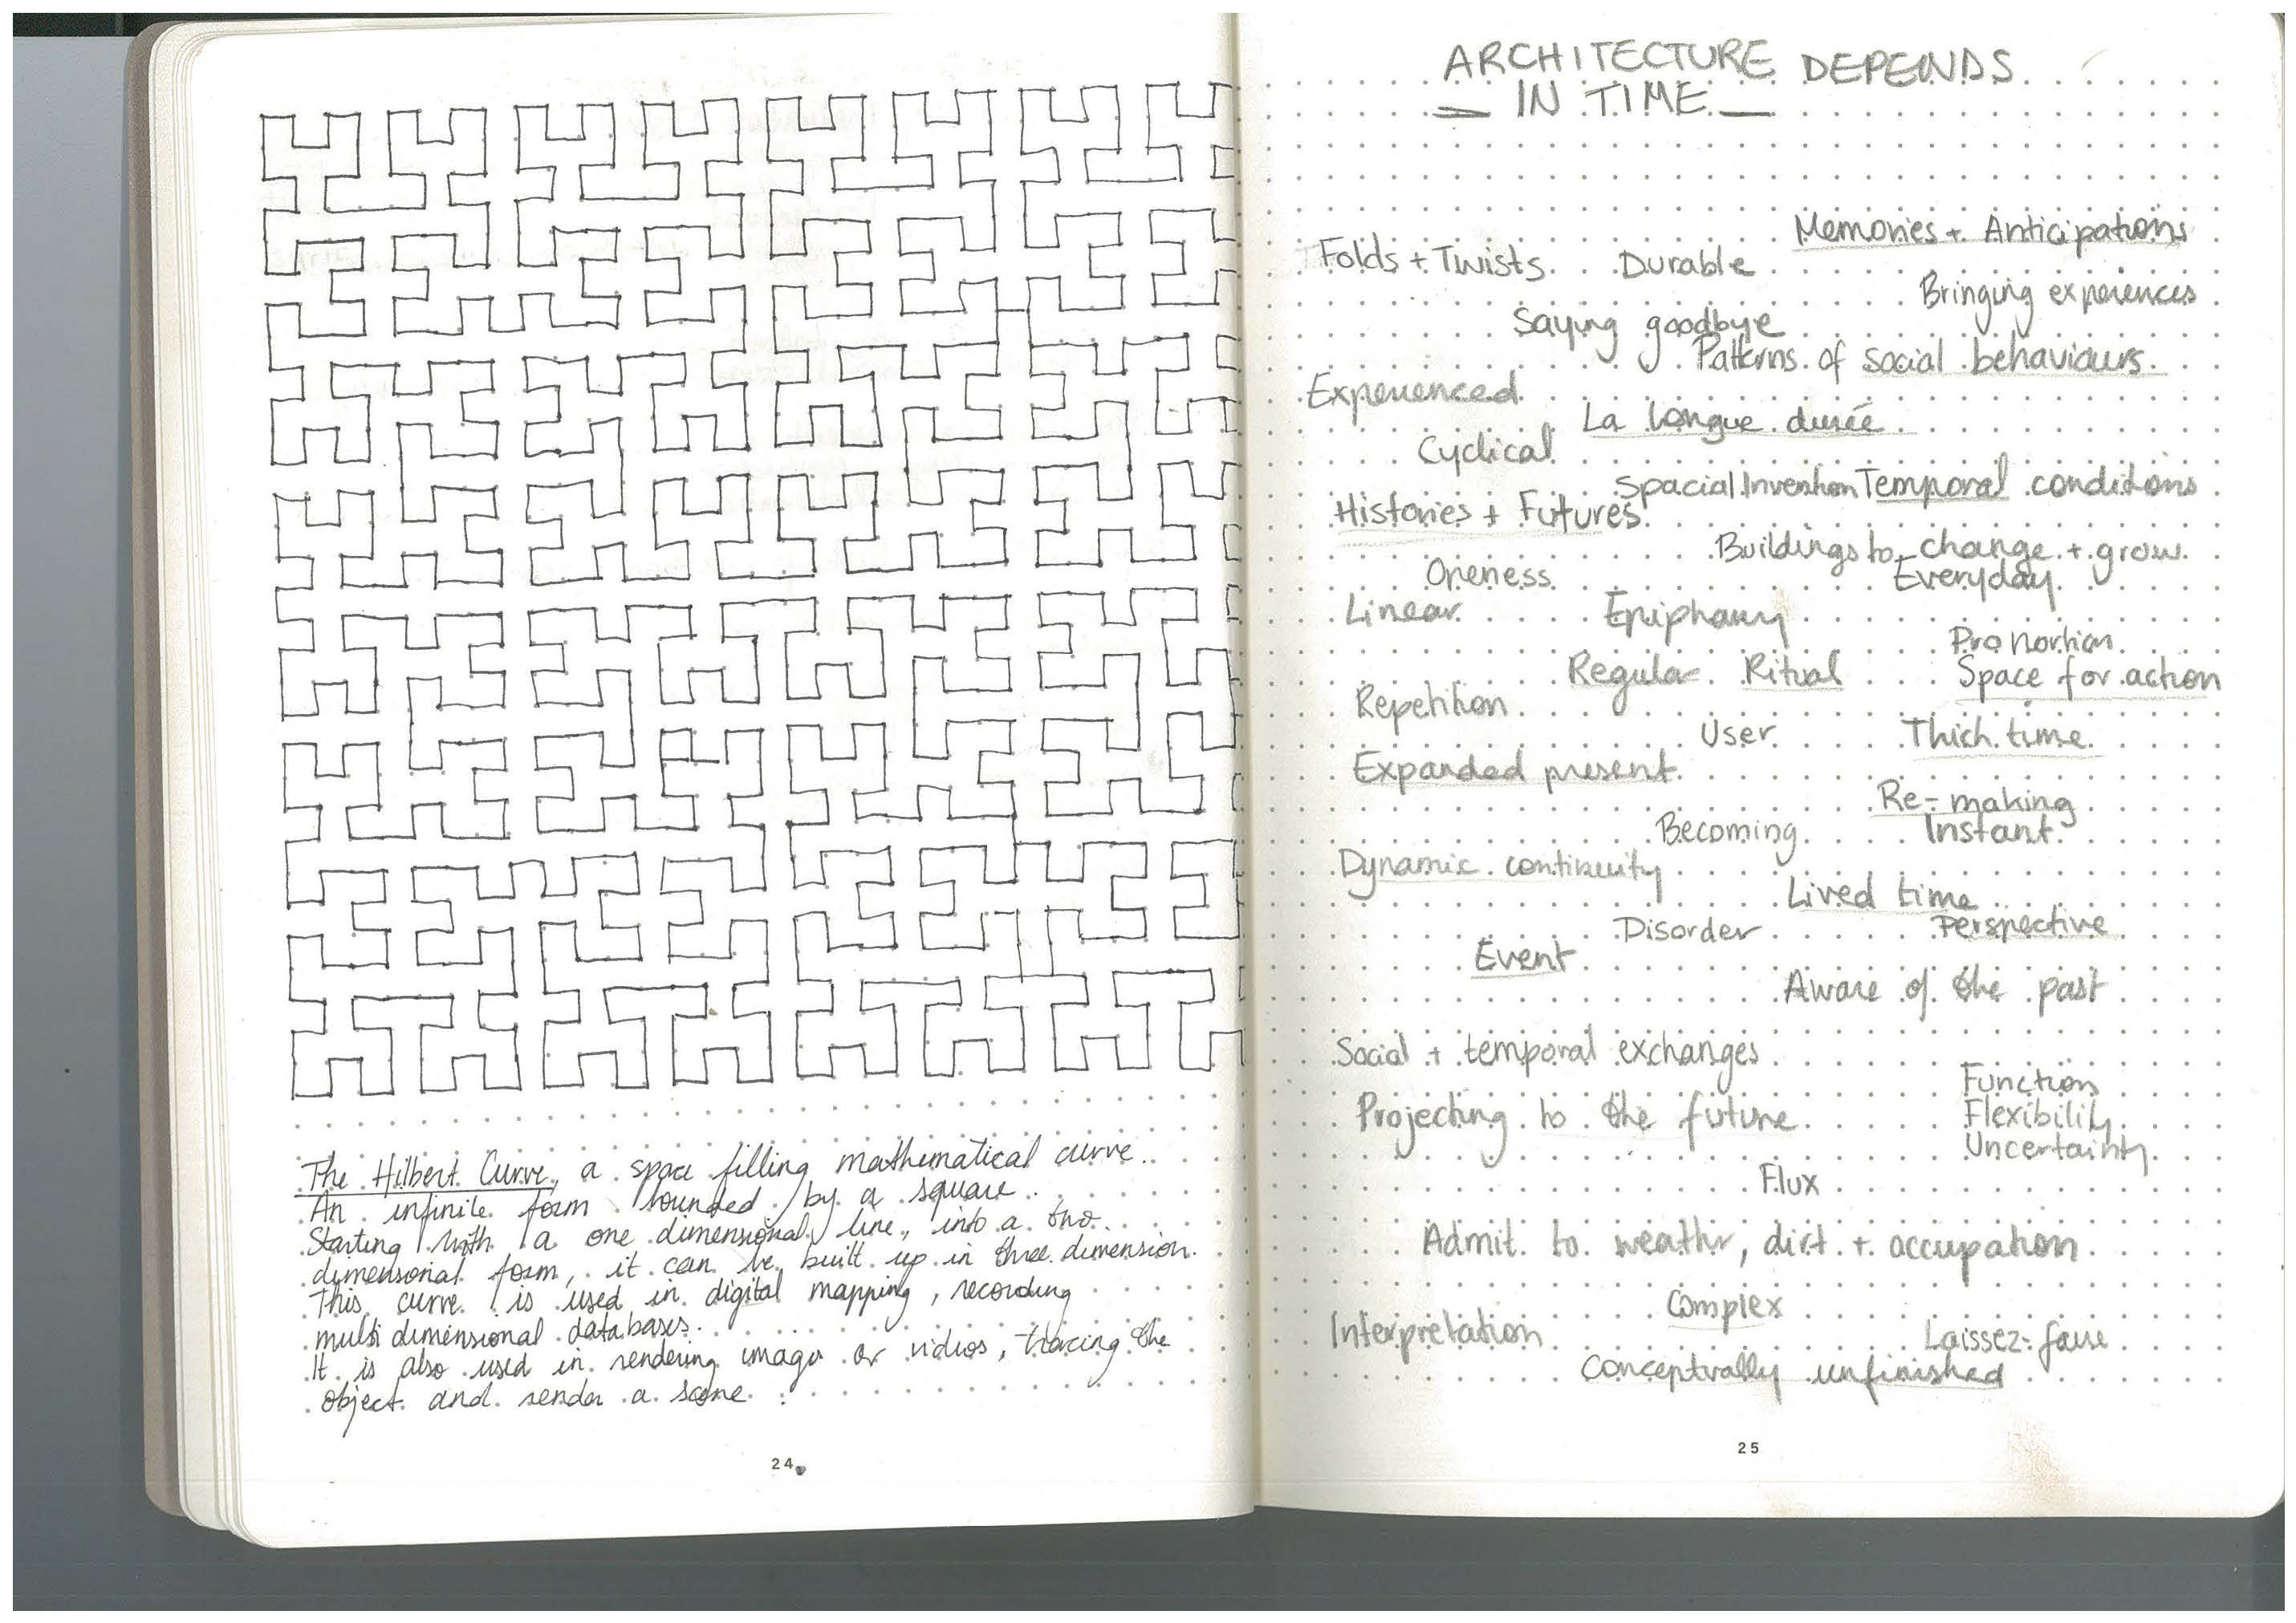 The Hilbert Curve, a space filling mathematical curve.
An infinite form bounded by a square.
Starting with a one dimensional line, into a two
dimensional form, it can be built up in three dimension.
This curve is used in digital mapping, recording
multi dimensional databases.
It is also used in rendering images or vidios, tracing the
object and render a scene.
24
ARCHITECTURE DEPENDS
— IN TIME —
Memories + Anticipations
Folds + Twists Durable
Bringing experiences
Saying goodbye
Patterns of social behaviours
Experienced
La longue durée
Cyclical
Spacial Invention Temporal conditions
Histories + Futures
Buildings to change + grow
Oneness Everyday
Linear Epiphany
Proportion
Regular Ritual Space for action
Repetition
User Thick time
Expanded present
Re-making
Becoming Instant
Dynamic continuity
Lived time
Disorder Perspective
Event
Aware of the past
Social + temporal exchanges
Function
Projecting to the future Flexibility
Uncertainty
Flux
Admit to weathr, dirt + occupation
Complex
Interpretation Laissez-faire
Conceptually unfinished
25